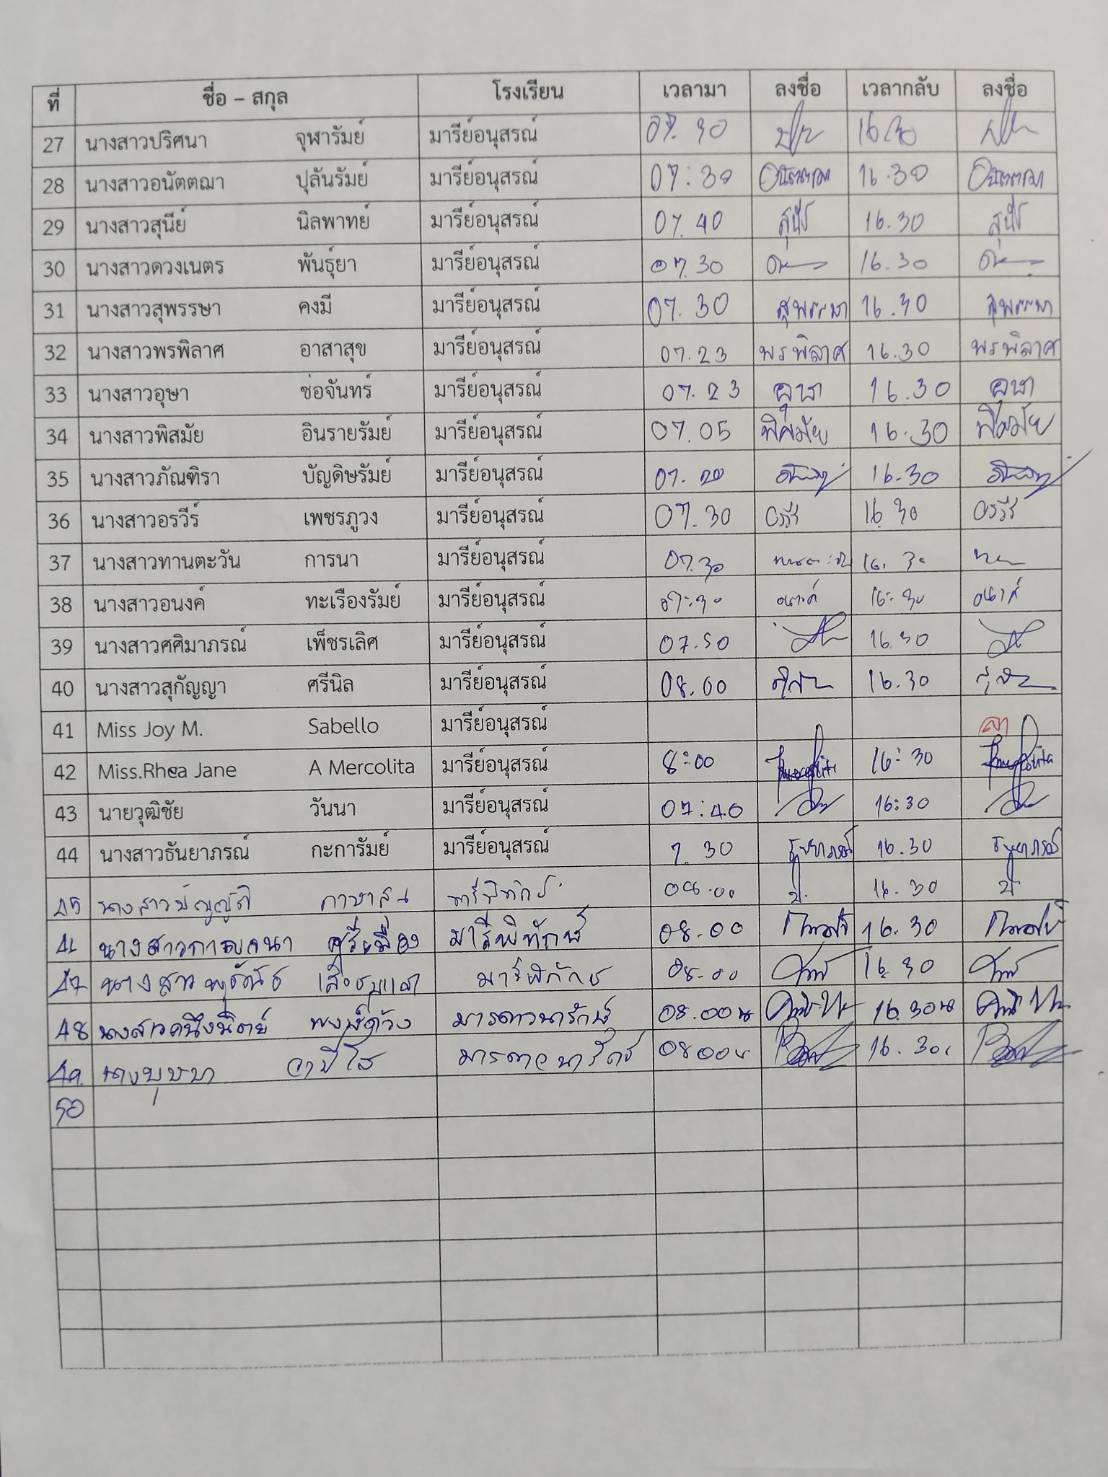 ที่ ชื่อ – สกุล โรงเรียน เวลามา ลงชื่อ เวลากลับ ลงชื่อ
27 นางสาวปริศนา จุฬารัมย์ มารีย์อนุสรณ์ 07.30 16.30
28 นางสาวอนัตตฌา ปุลันรัมย์ มารีย์อนุสรณ์ 07:30 16.30
29 นางสาวสุนีย์ นิลพาทย์ มารีย์อนุสรณ์ 07.40 สุนีย์ 16.30 สุนีย์
30 นางสาวดวงเนตร พันธุ์ยา มารีย์อนุสรณ์ 07.30 16.30
31 นางสาวสุพรรษา คงมี มารีย์อนุสรณ์ 07.30 สุพรรษา 16.30 สุพรรษา
32 นางสาวพรพิลาศ อาสาสุข มารีย์อนุสรณ์ 07.23 พรพิลาศ 16.30 พรพิลาศ
33 นางสาวอุษา ช่อจันทร์ มารีย์อนุสรณ์ 07.23 อุษา 16.30 อุษา
34 นางสาวพิสมัย อินรายรัมย์ มารีย์อนุสรณ์ 07.05 พิสมัย 16.30 พิสมัย
35 นางสาวภัณฑิรา บัญดิษรัมย์ มารีย์อนุสรณ์ 07.20 16.30
36 นางสาวอรวีร์ เพชรภูวง มารีย์อนุสรณ์ 07.30 อรวีร์ 16.30 อรวีร์
37 นางสาวทานตะวัน การนา มารีย์อนุสรณ์ 07.30 16.30
38 นางสาวอนงค์ ทะเรืองรัมย์ มารีย์อนุสรณ์ 07:30 อนงค์ 16:30 อนงค์
39 นางสาวศศิมาภรณ์ เพ็ชรเลิศ มารีย์อนุสรณ์ 07.50 16.30
40 นางสาวสุกัญญา ศรีนิล มารีย์อนุสรณ์ 08.00 16.30
41 Miss Joy M. Sabello มารีย์อนุสรณ์ ลา
42 Miss.Rhea Jane A Mercolita มารีย์อนุสรณ์ 8:00 16:30
43 นายวุฒิชัย วันนา มารีย์อนุสรณ์ 07:40 16:30
44 นางสาวธันยาภรณ์ กะการัมย์ มารีย์อนุสรณ์ 7.30 ธันยาภรณ์ 16.30 ธันยาภรณ์
45 นางสาว มารีพิทักษ์ 08.00 16.30
46 นางสาวกาญจนา ศรีเมือง มารีพิทักษ์ 08.00 16.30
47 นางสาว มารีพิทักษ์ 08.00 16.30
48 นางสาวคนึงนิตย์ พงษ์ด้วง มารดาวนารักษ์ 08.00 น 16.30 น
49 นางบุษบา มารดาวนารักษ์ 08.00 น 16.30
50